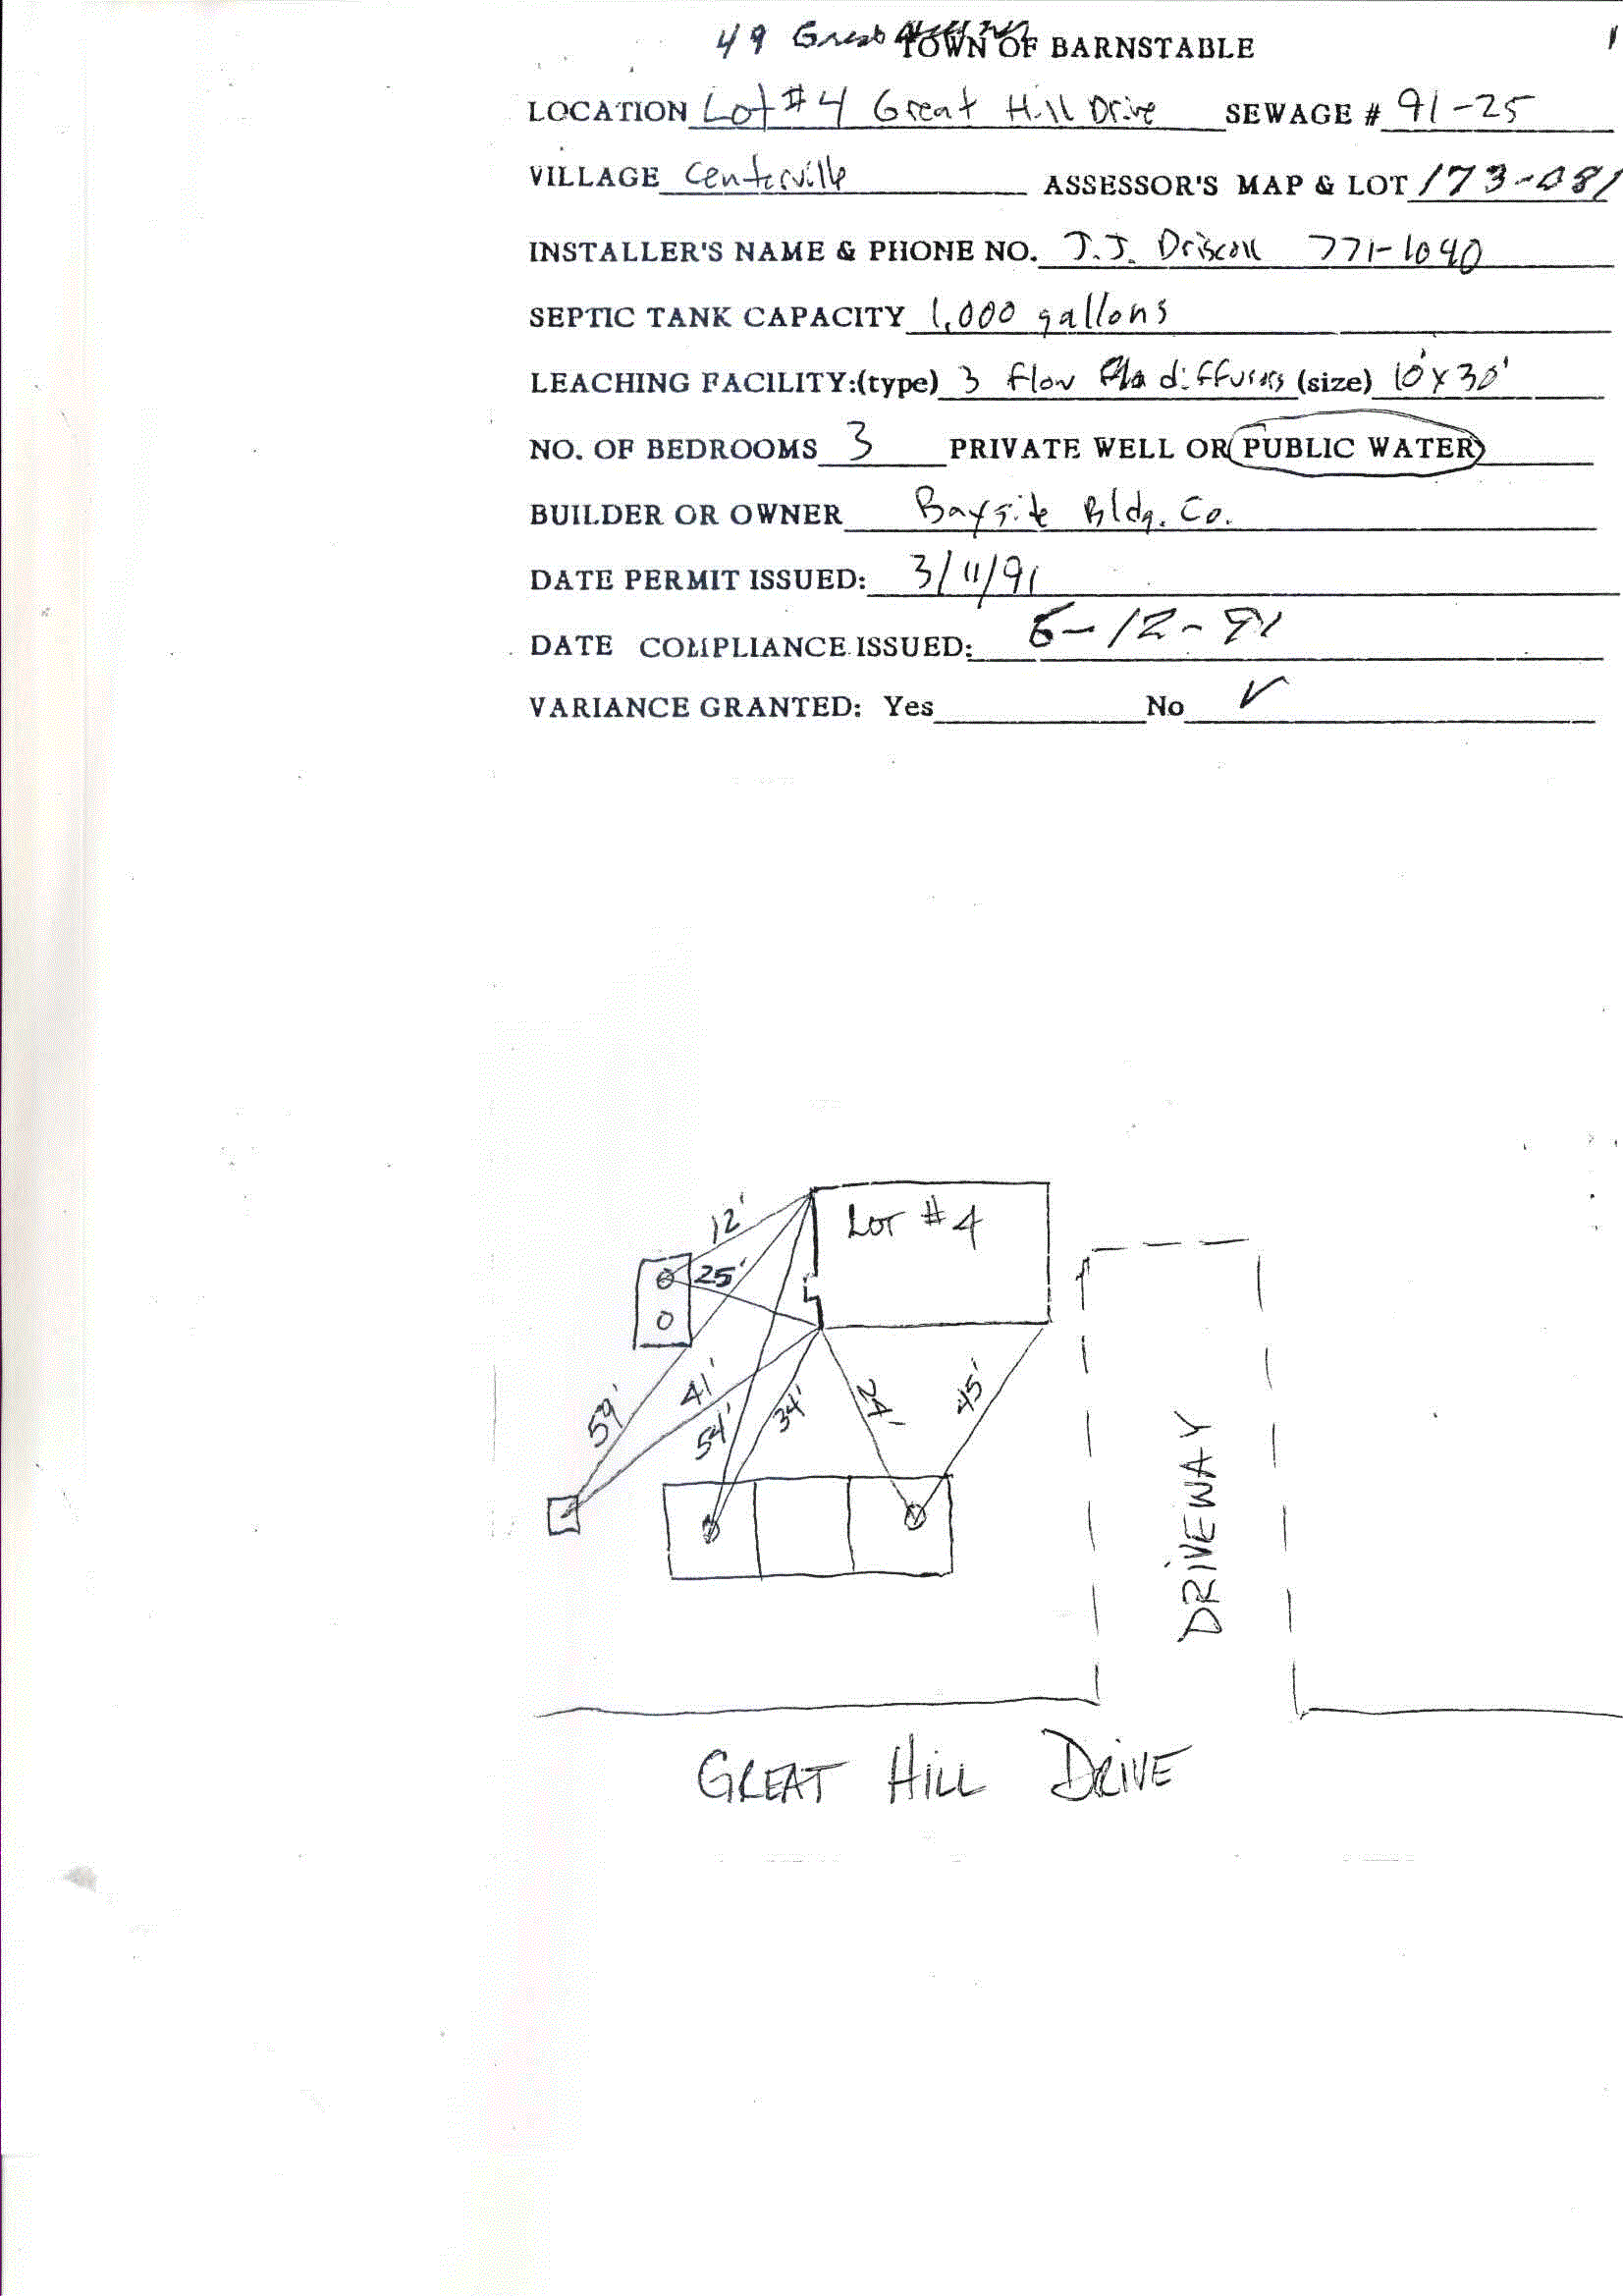 49 Great Hill
TOWN OF BARNSTABLE
LOCATION Lot #4 Great Hill Drive SEWAGE # 91-25
VILLAGE Centerville ASSESSOR'S MAP & LOT 173-081
INSTALLER'S NAME & PHONE NO. J.J. Driscoll 771-1040
SEPTIC TANK CAPACITY 1,000 gallons
LEACHING FACILITY:(type) 3 flow diffusers (size) 10'x30'
NO. OF BEDROOMS 3 PRIVATE WELL OR PUBLIC WATER
BUILDER OR OWNER Bayside Bldg. Co.
DATE PERMIT ISSUED: 3/11/91
DATE COMPLIANCE ISSUED: 6-12-91
VARIANCE GRANTED: Yes No ✓
12'
LOT #4
25'
59'
41'
54'
34'
24'
45'
DRIVEWAY
GREAT HILL DRIVE